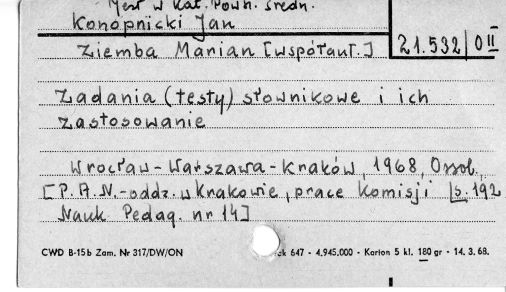 Jest w Kat. Powh. średn.
Konopnicki Jan
Ziemba Marian [współaut.]
21.532 | O II
Zadania (testy) słownikowe i ich
zastosowanie
Wrocław-Warszawa-Kraków, 1968, Ossol.,
[P.A.N.-oddz. w Krakowie, prace Komisji s. 192
Nauk Pedag. nr 14]
CWD B-15b Zam. Nr 317/DW/ON 647 - 4.945.000 - Karton 5 kl. 180 gr - 14.3.68.